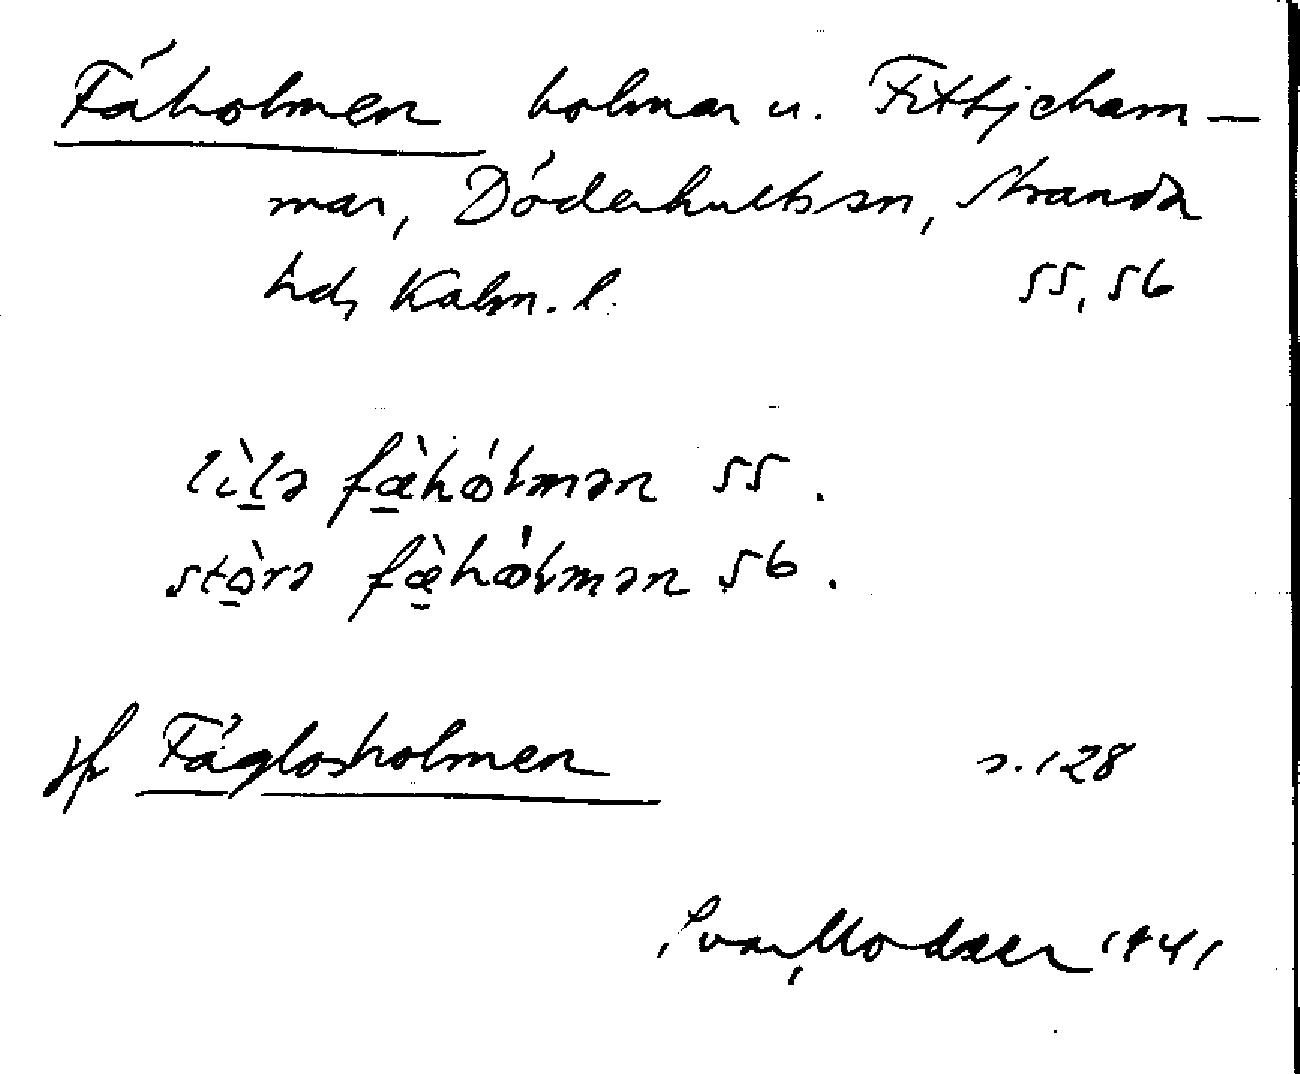 Fäholmen holmar u. Fittjeham-
mar, Döderhults sn, Stranda
hd, Kalm. l. 55, 56
lìlə fæ̀hólmən 55.
stòrə fæ̀hólmən 56.
jfr Fäglosholmen s. 128
Ivar Modéer 1941